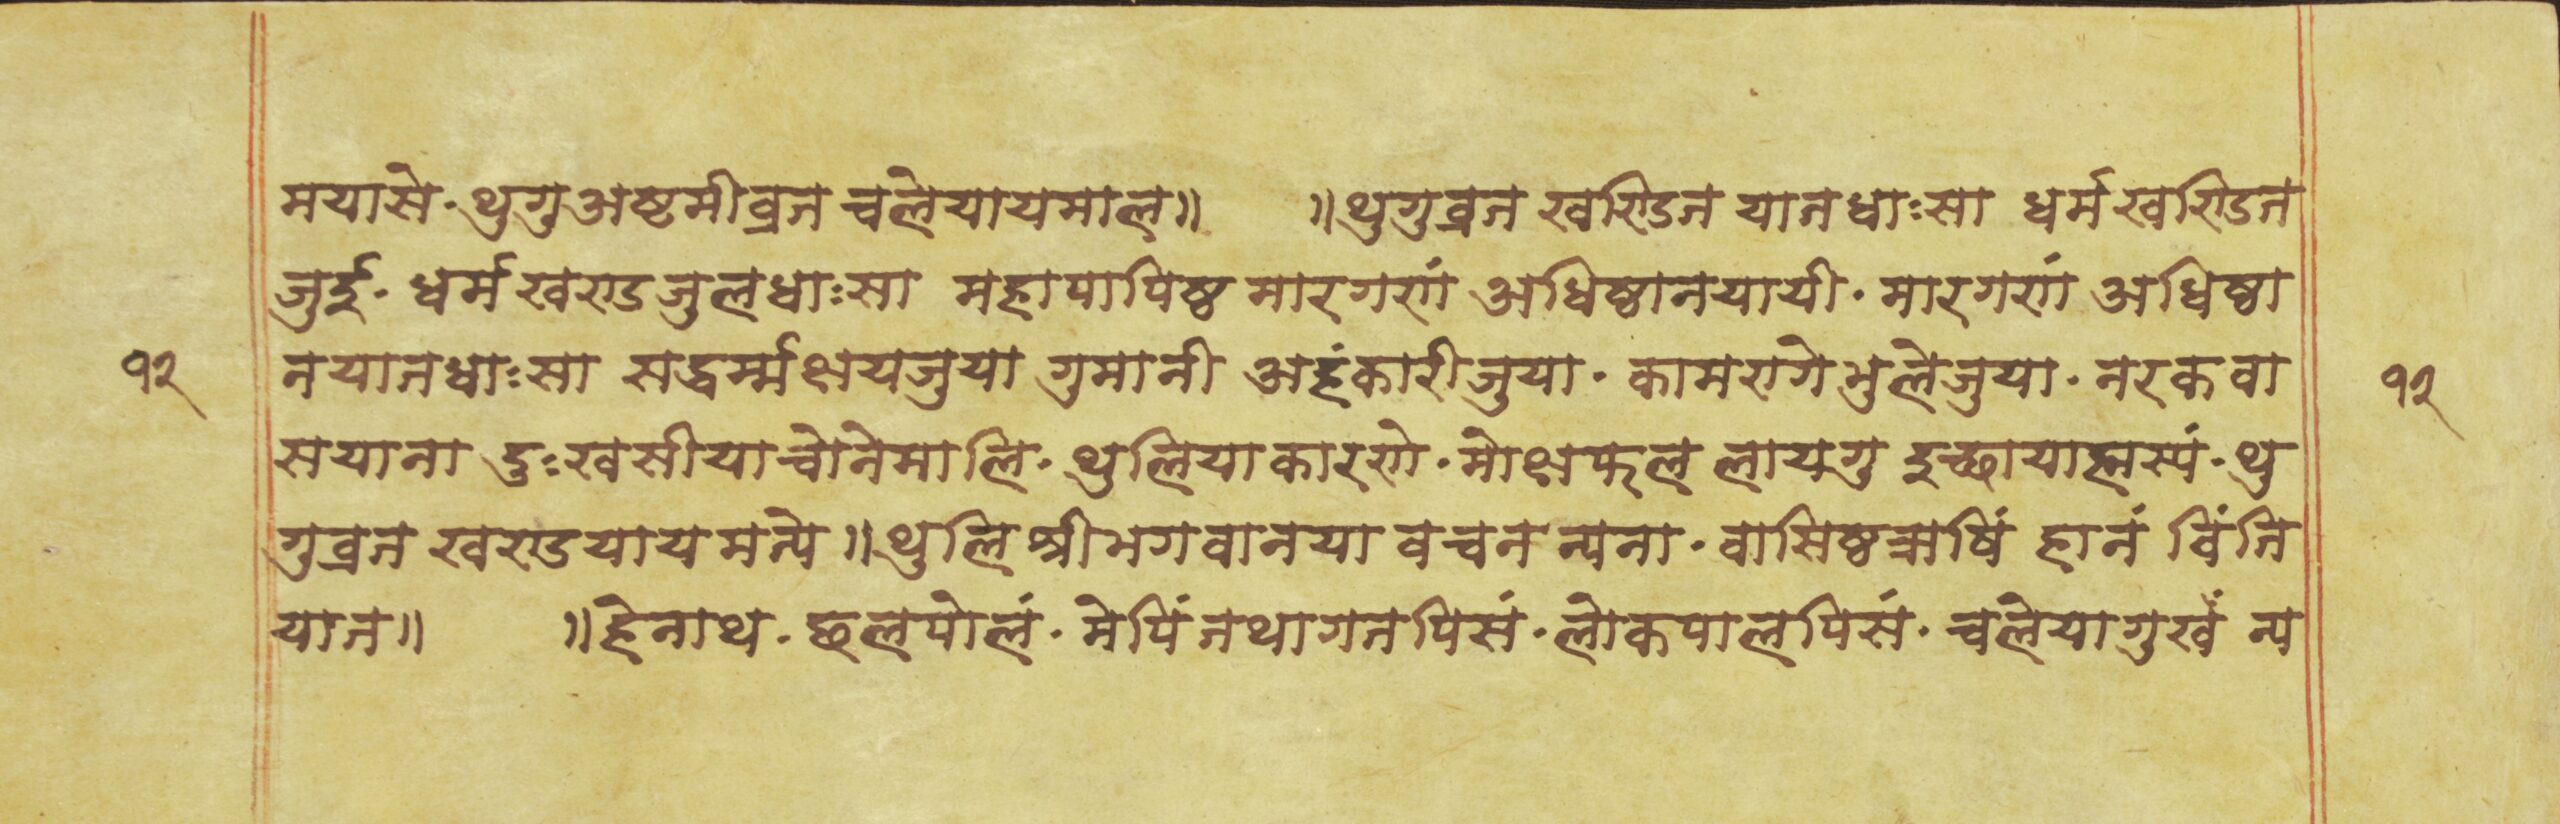 मयासे॰ थुगु अष्टमीव्रत चलेयायमाल॥ ॥थुगुव्रत खण्डित यातधाःसा धर्म खण्डित
जुई॰ धर्म खण्ड जुलधाःसा महापापिष्ठ मारगणं अधिष्ठानयायी॰ मारगणं अधिष्ठा
१२ नयातधाःसा सद्धर्म्मक्षयजुया गुमानी अहंकारीजुया॰ कामरागे भुलेजुया॰ नरकवा १२
सयाना दुःखसीयाचोनेमालि॰ थुलियाकारणे॰ मोक्षफल लायगु इच्छायाह्मस्यं॰ थु
गुव्रत खण्डयायमत्ये॥ थुलि श्रीभगवानया वचन न्यना॰ वासिष्ठऋषिं हानं विंति
यात॥ ॥हेनाथ॰ छलपोलं॰ मेपिं तथागतपिसं॰ लोकपालपिसं॰ चलेयागुखँ न्य